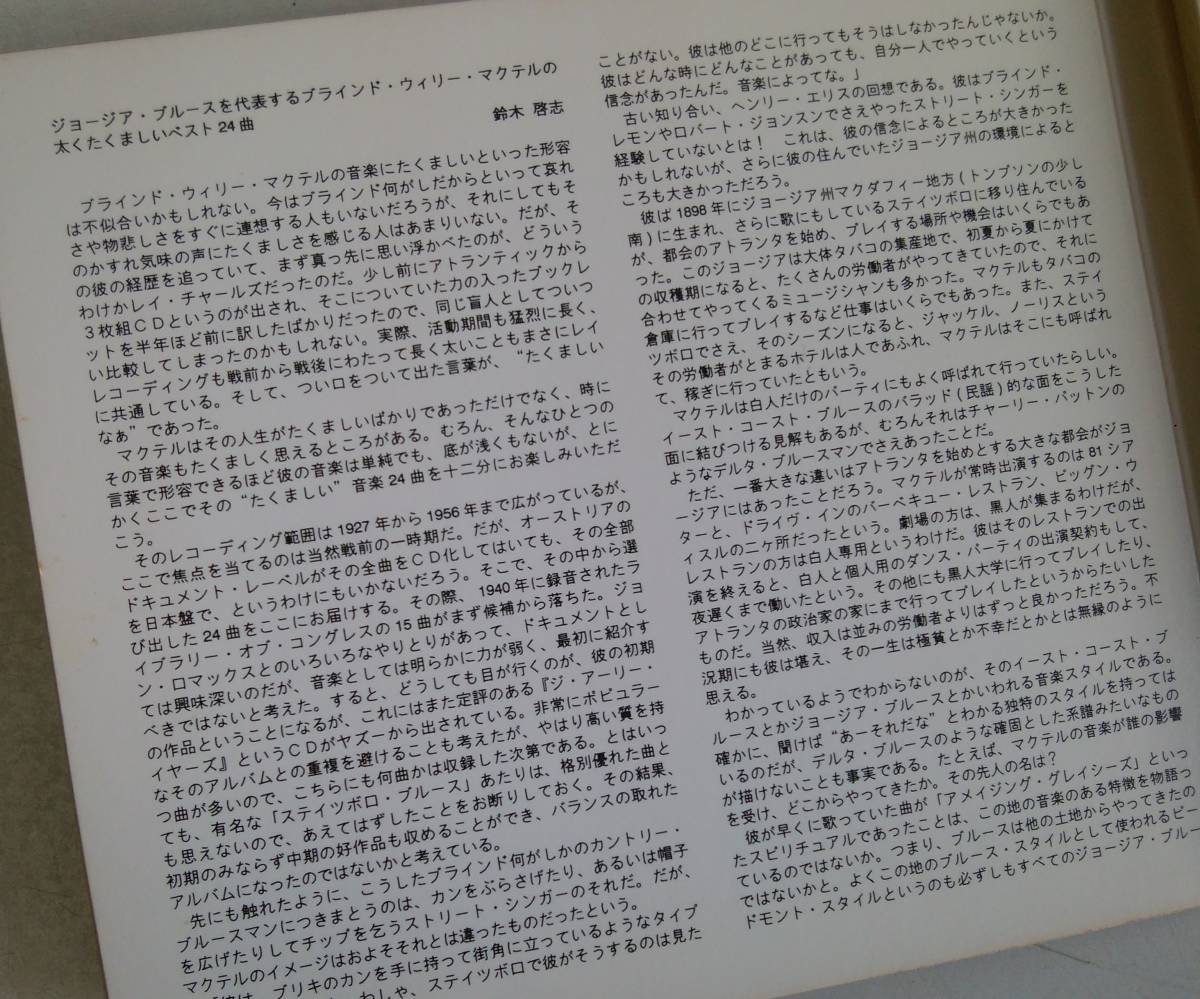 ジョージア・ブルースを代表するブラインド・ウィリー・マクテルの
太くたくましいベスト24曲
鈴木 啓志
ブラインド・ウィリー・マクテルの音楽にたくましいといった形容
は不似合いかもしれない。今はブラインド何がしだからといって哀れ
さや物悲しさをすぐに連想する人もいないだろうが、それにしてもそ
のかすれ気味の声にたくましさを感じる人はあまりいない。だが、そ
の彼の経歴を追っていて、まず真っ先に思い浮かべたのが、どういう
わけかレイ・チャールズだったのだ。少し前にアトランティックから
3枚組CDというのが出され、そこについていた力の入ったブックレ
ットを半年ほど前に訳したばかりだったので、同じ盲人としてついつ
い比較してしまったのかもしれない。実際、活動期間も猛烈に長く、
レコーディングも戦前から戦後にわたって長く太いこともまさにレイ
に共通している。そして、つい口をついて出た言葉が、“たくましい
なぁ”であった。
マクテルはその人生がたくましいばかりであっただけでなく、時に
その音楽もたくましく思えるところがある。むろん、そんなひとつの
言葉で形容できるほど彼の音楽は単純でも、底が浅くもないが、とに
かくここでその“たくましい”音楽24曲を十二分にお楽しみいただ
こう。
そのレコーディング範囲は1927年から1956年まで広がっているが、
ここで焦点を当てるのは当然戦前の一時期だ。だが、オーストリアの
ドキュメント・レーベルがその全曲をCD化してはいても、その全部
を日本盤で、というわけにもいかないだろう。そこで、その中から選
び出した24曲をここにお届けする。その際、1940年に録音されたラ
イブラリー・オブ・コングレスの15曲がまず候補から落ちた。ジョ
ン・ロマックスとのいろいろなやりとりがあって、ドキュメントとし
ては興味深いのだが、音楽としては明らかに力が弱く、最初に紹介す
べきではないと考えた。すると、どうしても目が行くのが、彼の初期
の作品ということになるが、これにはまた定評のある『ジ・アーリー・
イヤーズ』というCDがヤズーから出されている。非常にポピュラー
なそのアルバムとの重複を避けることも考えたが、やはり高い質を持
つ曲が多いので、こちらにも何曲かは収録した次第である。とはいっ
ても、有名な「ステイツボロ・ブルース」あたりは、格別優れた曲と
も思えないので、あえてはずしたことをお断りしておく。その結果、
初期のみならず中期の好作品も収めることができ、バランスの取れた
アルバムになったのではないかと考えている。
先にも触れたように、こうしたブラインド何がしかのカントリー・
ブルースマンにつきまとうのは、カンをぶらさげたり、あるいは帽子
を広げたりしてチップを乞うストリート・シンガーのそれだ。だが、
マクテルのイメージはおよそそれとは違ったものだったという。
「彼は、ブリキのカンを手に持って街角に立っているようなタイプ
わしゃ、ステイツボロで彼がそうするのは見た
ことがない。彼は他のどこに行ってもそうはしなかったんじゃないか。
彼はどんな時にどんなことがあっても、自分一人でやっていくという
信念があったんだ。音楽によってな。」
古い知り合い、ヘンリー・エリスの回想である。彼はブラインド・
レモンやロバート・ジョンスンでさえやったストリート・シンガーを
経験していないとは！　これは、彼の信念によるところが大きかった
かもしれないが、さらに彼の住んでいたジョージア州の環境によると
ころも大きかっただろう。
彼ば1898年にジョージア州マクダフィー地方(トンプソンの少し
南)に生まれ、さらに歌にもしているステイツボロに移り住んでいる
が、都会のアトランタを始め、プレイする場所や機会はいくらでもあ
った。このジョージアは大体タバコの集産地で、初夏から夏にかけて
の収穫期になると、たくさんの労働者がやってきていたので、それに
合わせてやってくるミュージシャンも多かった。マクテルもタバコの
倉庫に行ってプレイするなど仕事はいくらでもあった。また、ステイ
ツボロでさえ、そのシーズンになると、ジャッケル、ノーリスという
その労働者がとまるホテルは人であふれ、マクテルはそこにも呼ばれ
て、稼ぎに行っていたともいう。
マクテルは白人だけのパーティにもよく呼ばれて行っていたらしい。
イースト・コースト・ブルースのバラッド(民謡)的な面をこうした
面に結びつける見解もあるが、むろんそれはチャーリー・パットンの
ようなデルタ・ブルースマンでさえあったことだ。
ただ、一番大きな違いはアトランタを始めとする大きな都会がジョ
ージアにはあったことだろう。マクテルが常時出演するのは81シア
ターと、ドライヴ・インのバーベキュー・レストラン、ビッグン・ウ
ィスルの二ヶ所だったという。劇場の方は、黒人が集まるわけだが、
レストランの方は白人専用というわけだ。彼はそのレストランでの出
演を終えると、白人と個人用のダンス・パーティの出演契約もして、
夜遅くまで働いたという。その他にも黒人大学に行ってプレイしたり、
アトランタの政治家の家にまで行ってプレイしたというからたいした
ものだ。当然、収入は並みの労働者よりはずっと良かっただろう。不
況期にも彼は堪え、その一生は極貧とか不幸だとかとは無縁のように
思える。
わかっているようでわからないのが、そのイースト・コースト・ブ
ルースとかジョージア・ブルースとかいわれる音楽スタイルである。
確かに、聞けば“あーそれだな”とわかる独特のスタイルを持っては
いるのだが、デルタ・ブルースのような確固とした系譜みたいなもの
が描けないことも事実である。たとえば、マクテルの音楽が誰の影響
を受け、どこからやってきたか。その先人の名は？
彼が早くに歌っていた曲が「アメイジング・グレイシーズ」といっ
たスピリチュアルであったことは、この地の音楽のある特徴を物語っ
ているのではないか。つまり、ブルースは他の土地からやってきたの
ではないかと。よくこの地のブルース・スタイルとして使われるピー
ドモント・スタイルというのも必ずしもすべてのジョージア・ブルー